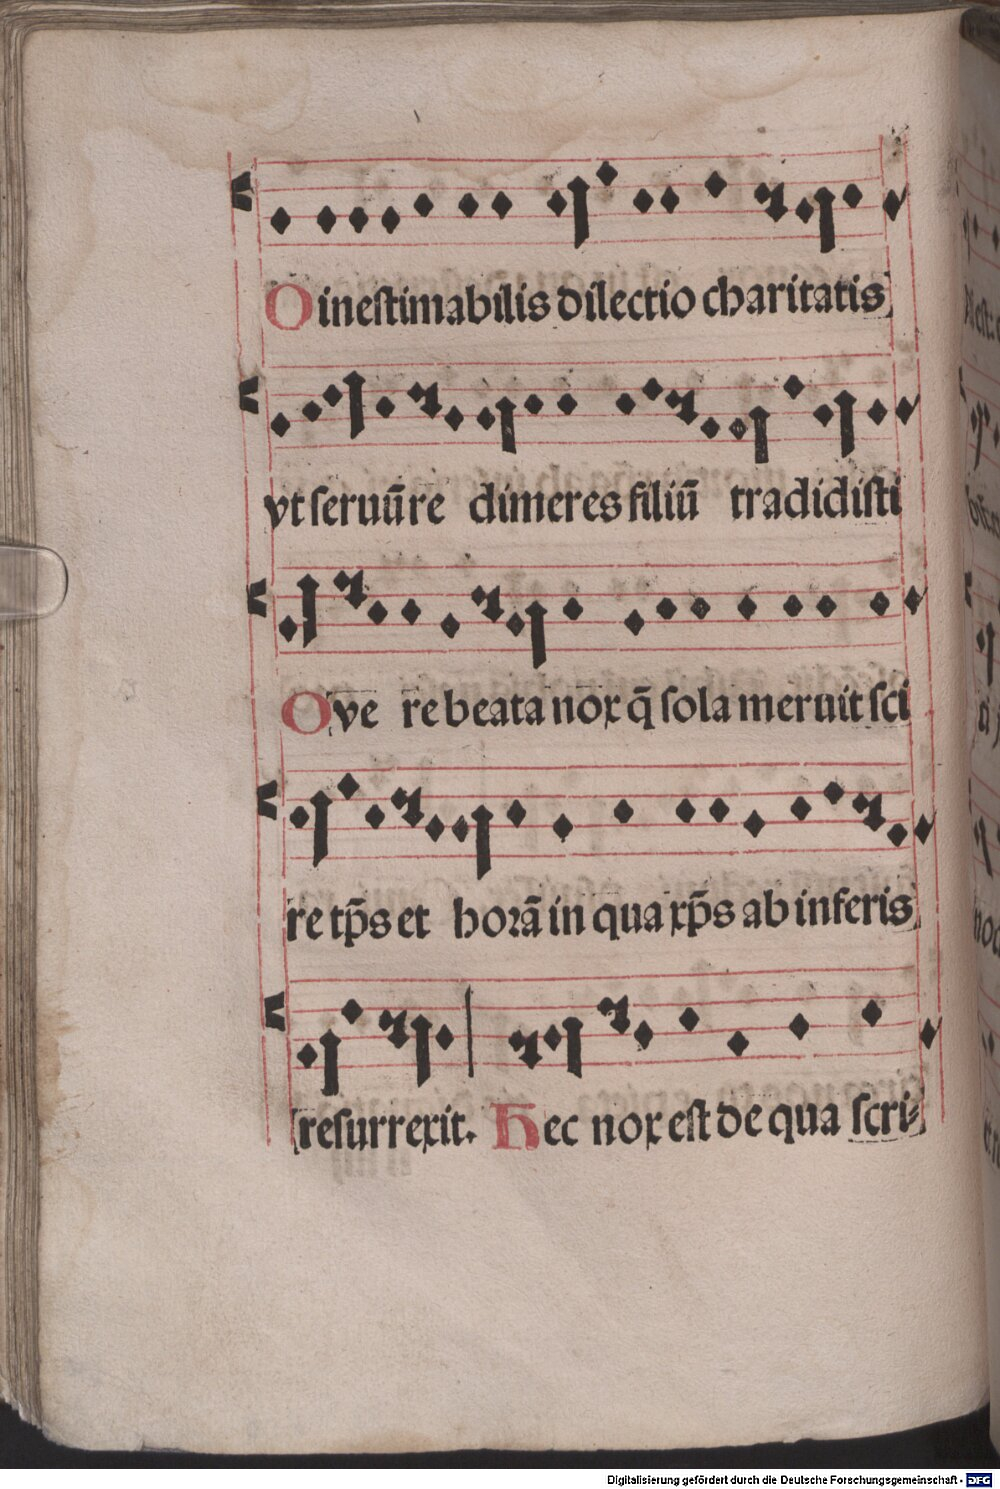 O inestimabilis dilectio charitatis
vt seruūre dimeres filiū tradidisti
O ve re beata nox q̄ sola meruit sci
re tp̄s et horā in qua xp̄s ab inferis
resurrexit. Hec nox est de qua scri-
Digitalisierung gefördert durch die Deutsche Forschungsgemeinschaft - DFG